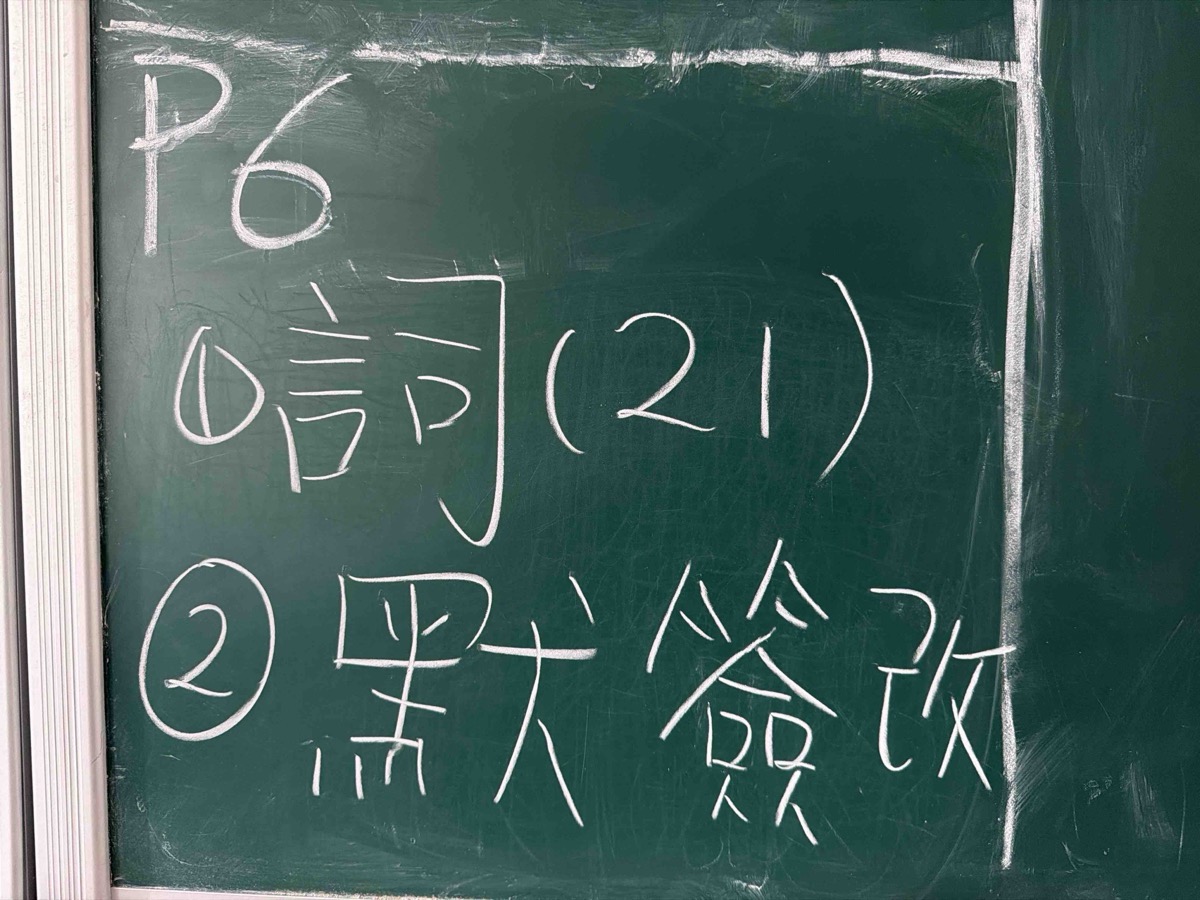 P6
①詞(21)
②默簽改